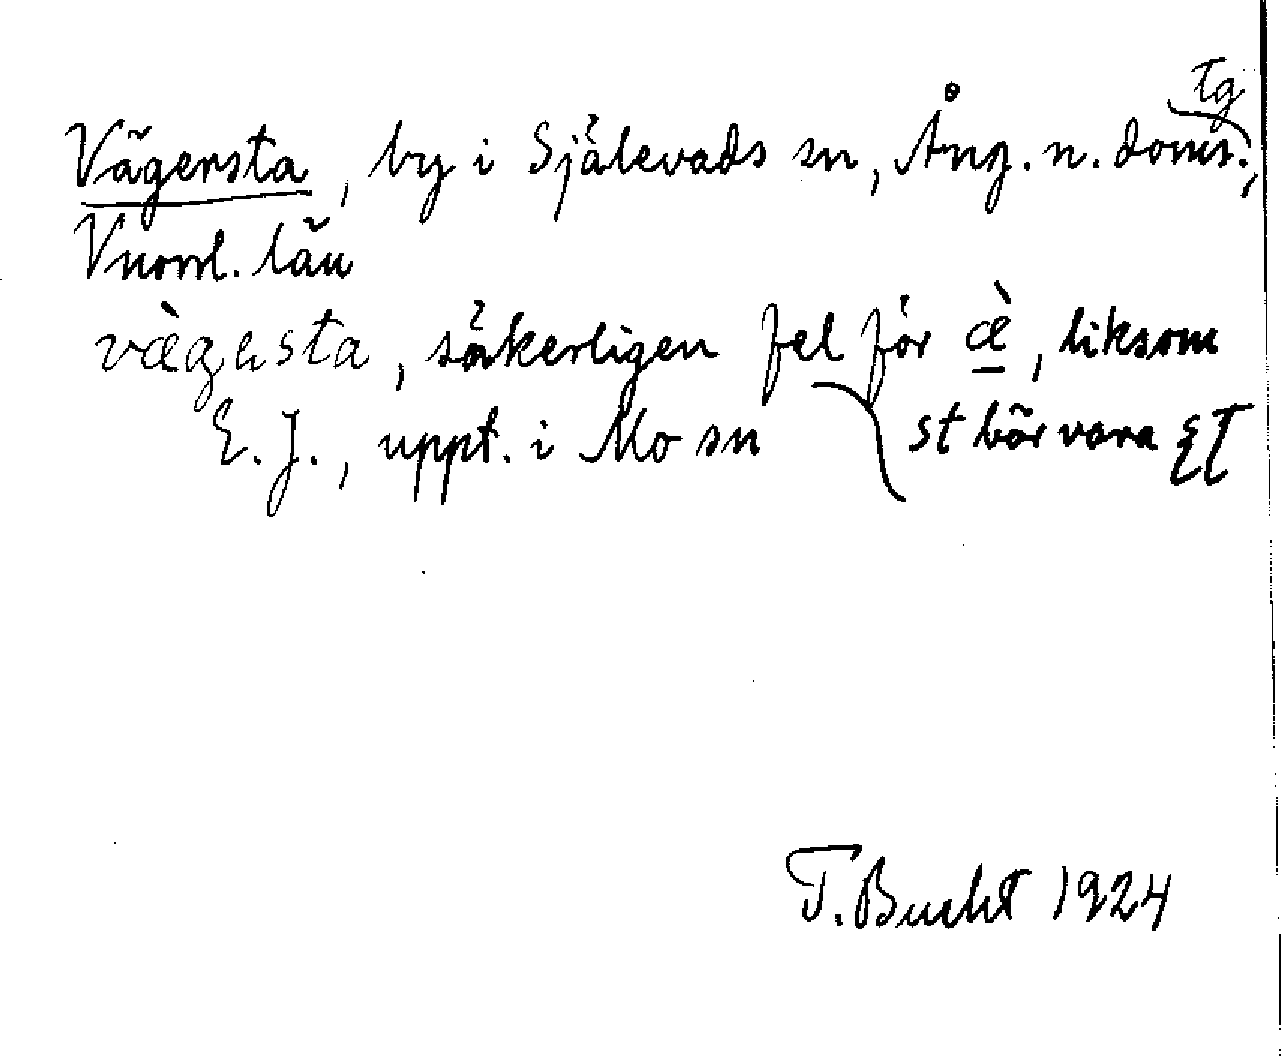 Tg
Vägersta, by i Själevads sn, Ång. n. doms.,
Vnorrl. län
væ̀gasta, säkerligen fel för æ̀, liksom
E. J., uppt. i Mo sn st bör vara
T. Bucht 1924